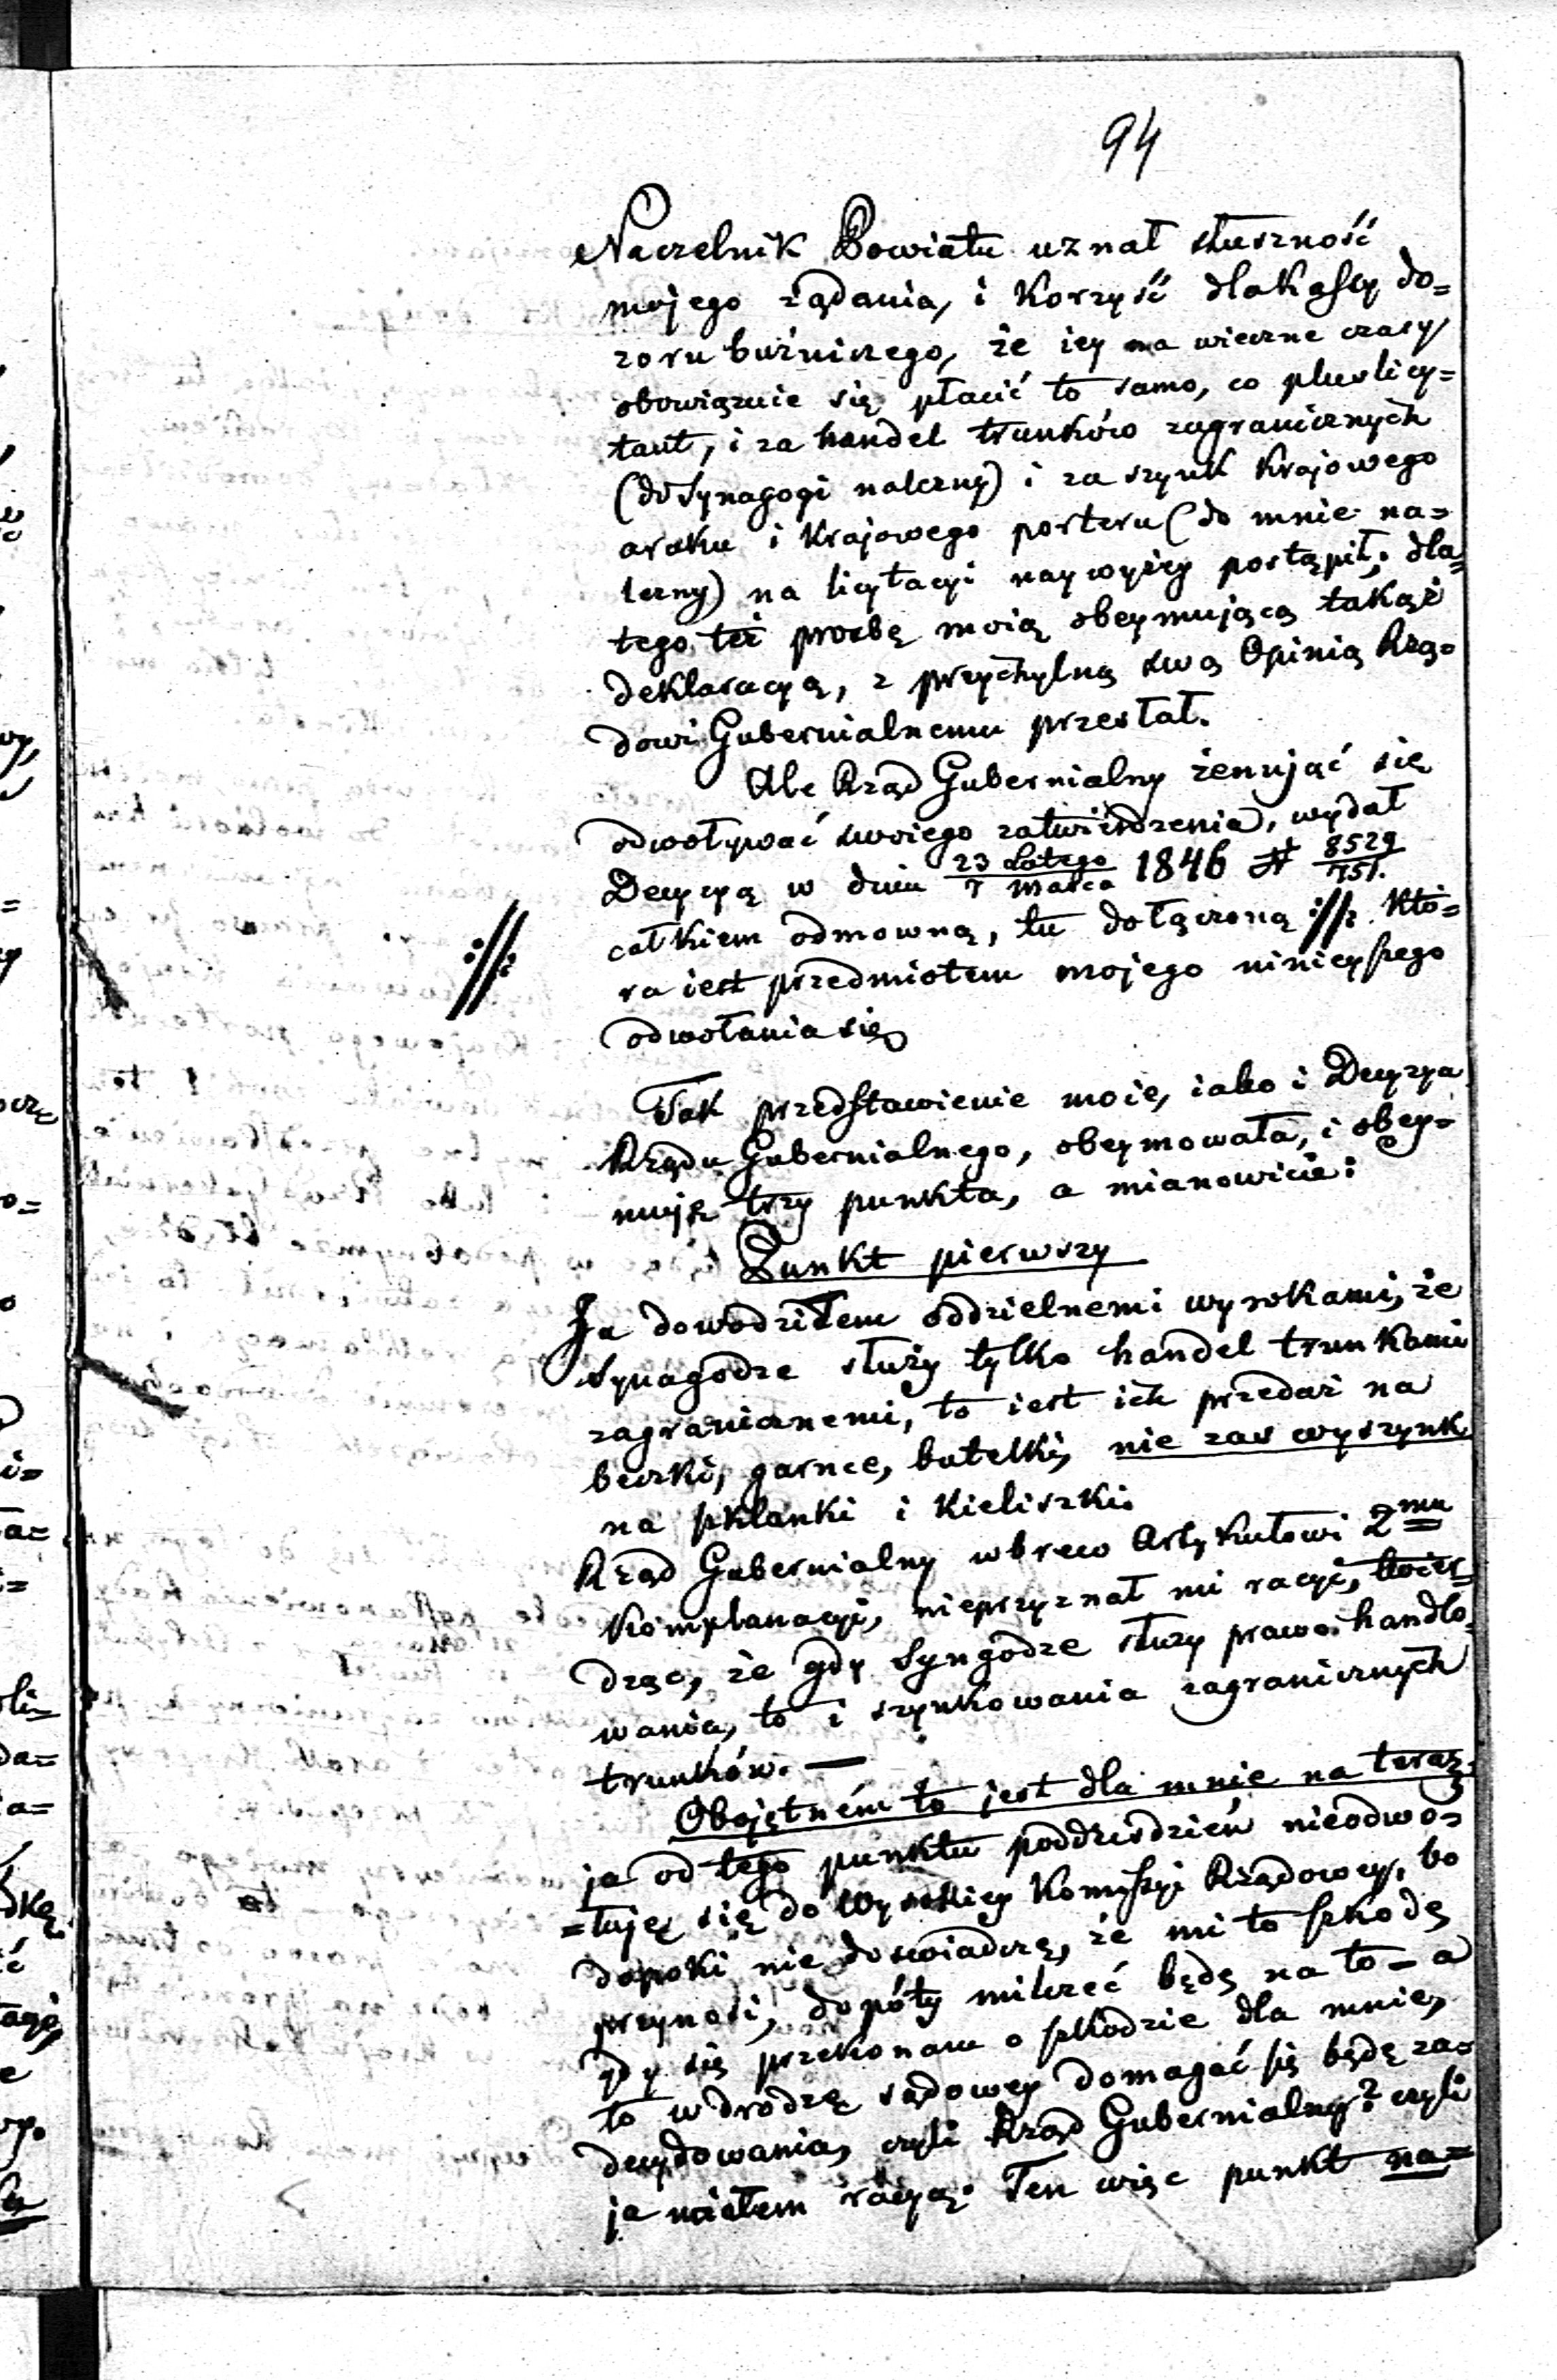 94
Naczelnik Powiatu uznał słuszność
mojego żądania, i korzyść dla kassy do=
zoru bużniczego, że iey na wieczne czasy
obowiązuie się płacić to samo, co pluslicy=
tant, i za handel trunków zagranicznych
(do Synagogi należny) i za szynk krajowego
araku i krajowego porteru (do mnie na=
leżny) na licytacyi naywyżey postąpił; dla=
tego też prożbę moią obeymującą takąż
deklaracyą, z przychylną swą Opinią Rzą=
dowi Gubernialnemu przesłał.
Ale Rząd Gubernialny żenując się
odwoływać swoiego zatwierdzenia, wydał
Decyzyą w dniu 23 Lutego / 7 Marca 1846 N 8529/751.
całkiem odmowną, tu dołączoną :||: któ=
:||:
ra iest przedmiotem mojego ninieyszego
odwołania się
Tak przedstawienie moie, iako i Decyzya
Rządu Gubernialnego, obeymowała, i obey=
muje trzy punkta, a mianowicie:
Punkt pierwszy
Ja dowodziłem oddzielnemi wyrokami, że
Synagodze służy tylko handel trunkami
zagranicznemi, to iest ich przedaż na
beczki, garnce, butelki, nie zas wyszynk
na szklanki i kieliszki.
Rząd Gubernialny wbrew Artykułowi 2mu
Komplanacyi, nieprzyznał mi racyi, twier=
dząc, że gdy Syngodze służy prawo handlo=
wania, to i szynkowania zagranicznych
trunków. —
Obojętném to jest dla mnie na teraz.
ja od tego punktu poddziśdzień nieodwo=
=łuję się do Wysokiey Komissyi Rządowey, bo
dopoki nie doswiadczę, że mi to szkodę
przynosi, dopóty milczeć będę na to – a
gdy się przekonam o szkodzie dla mnie,
to w drodze sądowey domagać się będę za=
decydowania, czyli Rząd Gubernialny? czyli
ja miałem racyą. Ten więc punkt na=